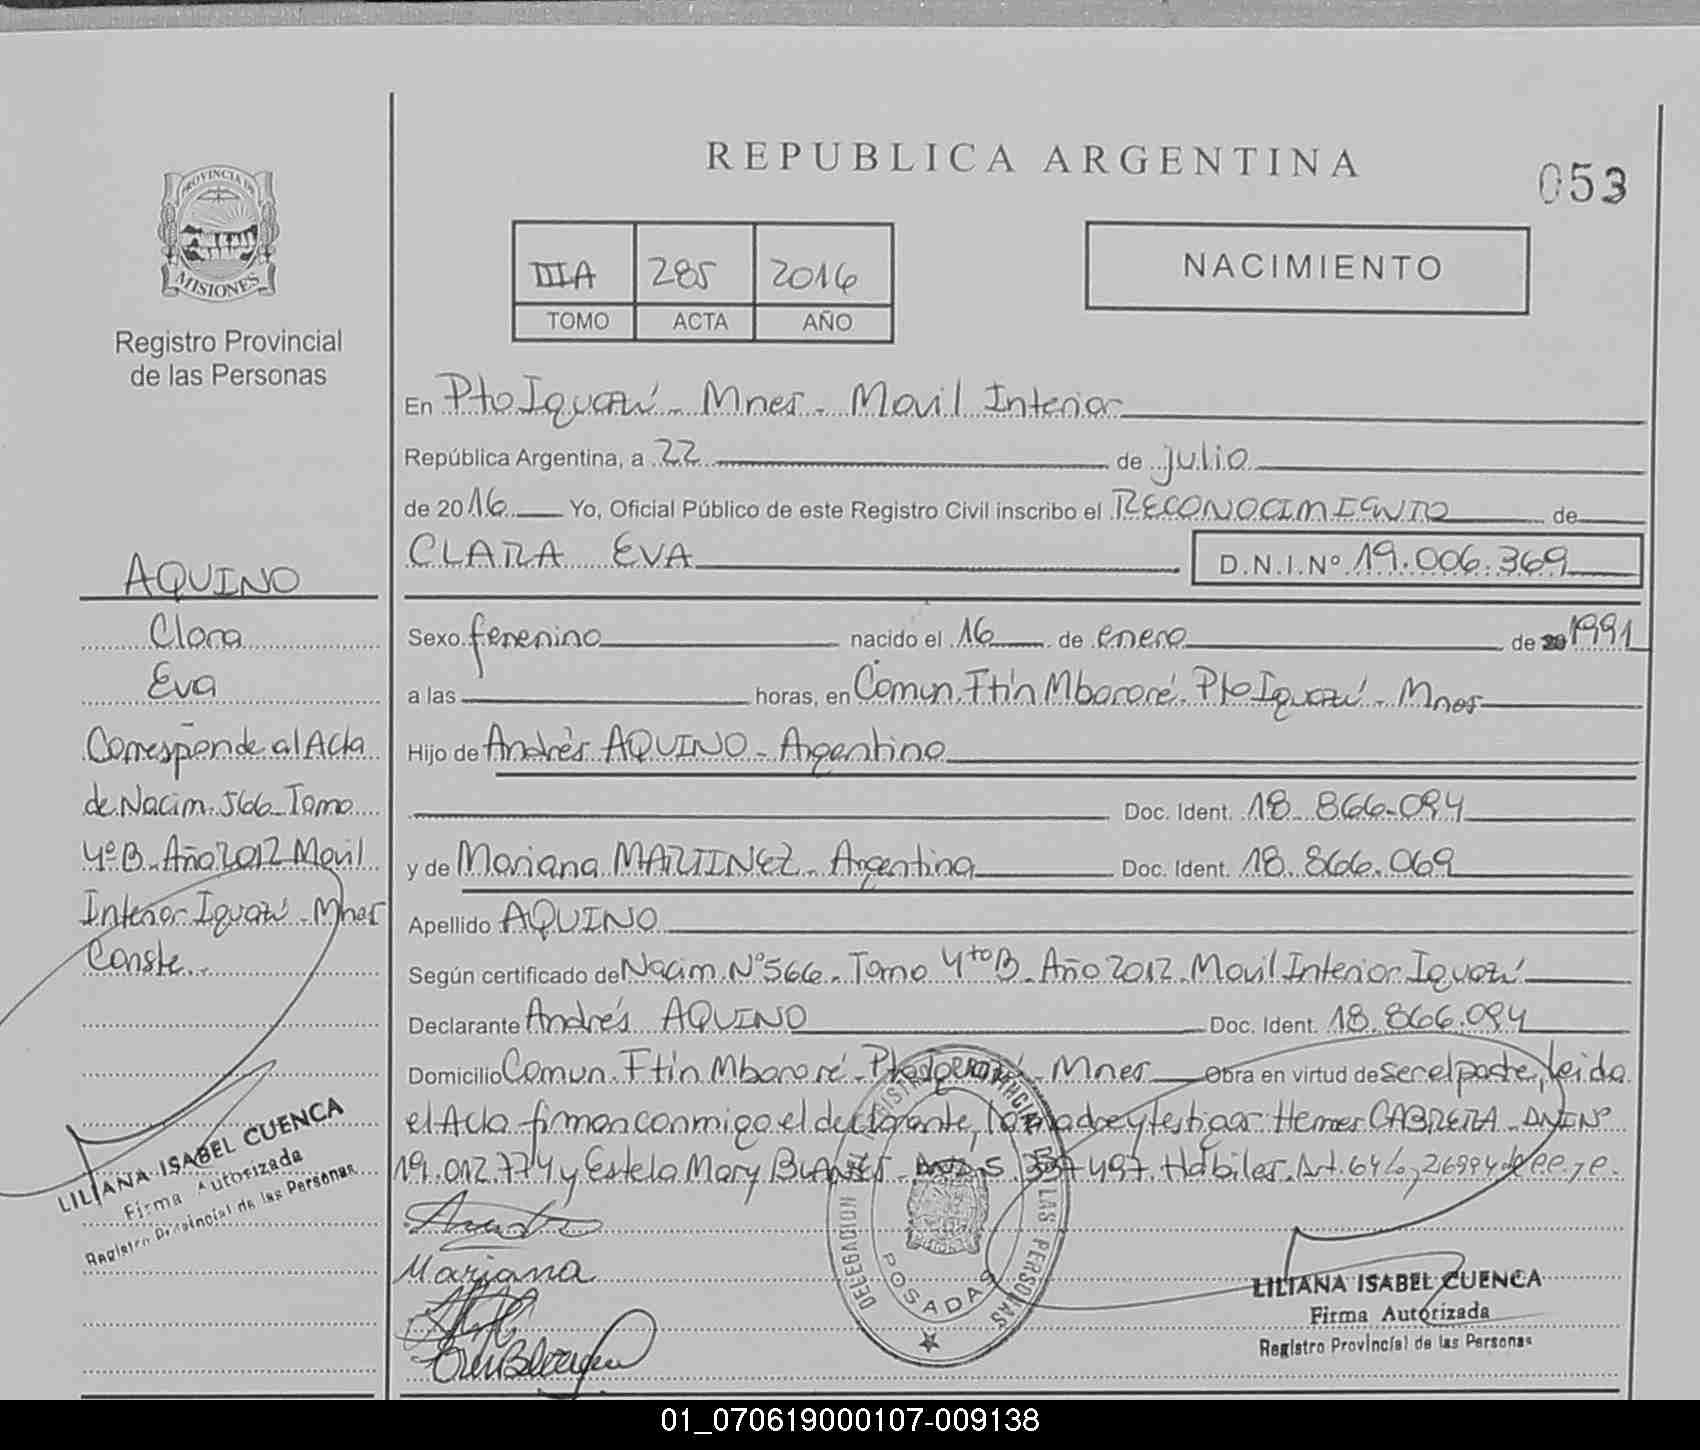 REPUBLICA ARGENTINA
053
PROVINCIA DE
MISIONES
Registro Provincial
de las Personas
IIIA 285 2016
TOMO ACTA AÑO
NACIMIENTO
En Pto Iguazú - Mnes - Movil Interior
República Argentina, a 22 de julio
de 2016 Yo, Oficial Público de este Registro Civil inscribo el RECONOCIMIENTO de
CLARA EVA
D.N.I.Nº 19.006.369
Sexo femenino nacido el 16 de enero de 1991
a las horas, en Comun. Ftín Mbororé - Pto Iguazú - Mnes
Hijo de Andrés AQUINO - Argentino
Doc. Ident. 18.866.094
y de Mariana MARTINEZ - Argentina Doc. Ident. 18.866.069
Apellido AQUINO
Según certificado de Nacim. Nº 566 - Tomo 4to B - Año 2012 - Movil Interior Iguazú
Declarante Andrés AQUINO Doc. Ident. 18.866.094
Domicilio Comun. Ftín Mbororé - Pto Iguazú - Mnes Obra en virtud de ser el padre, leida
el Acta firman conmigo el declarante, la madre y testigos Hermes CABRERA - DNI Nº
19.012.774 y Estela Mary 497. Habiles. Art.
Mariana
AQUINO
Clara
Eva
Corresponde al Acta
de Nacim. 566 Tomo
4º B - Año 2012 Movil
Interior Iguazú - Mnes
Conste.
LILIANA ISABEL CUENCA
Firma Autorizada
Registro Provincial de las Personas
DELEGACION
LAS PERSONAS
POSADAS
LILIANA ISABEL CUENCA
Firma Autorizada
Registro Provincial de las Personas
01_070619000107-009138